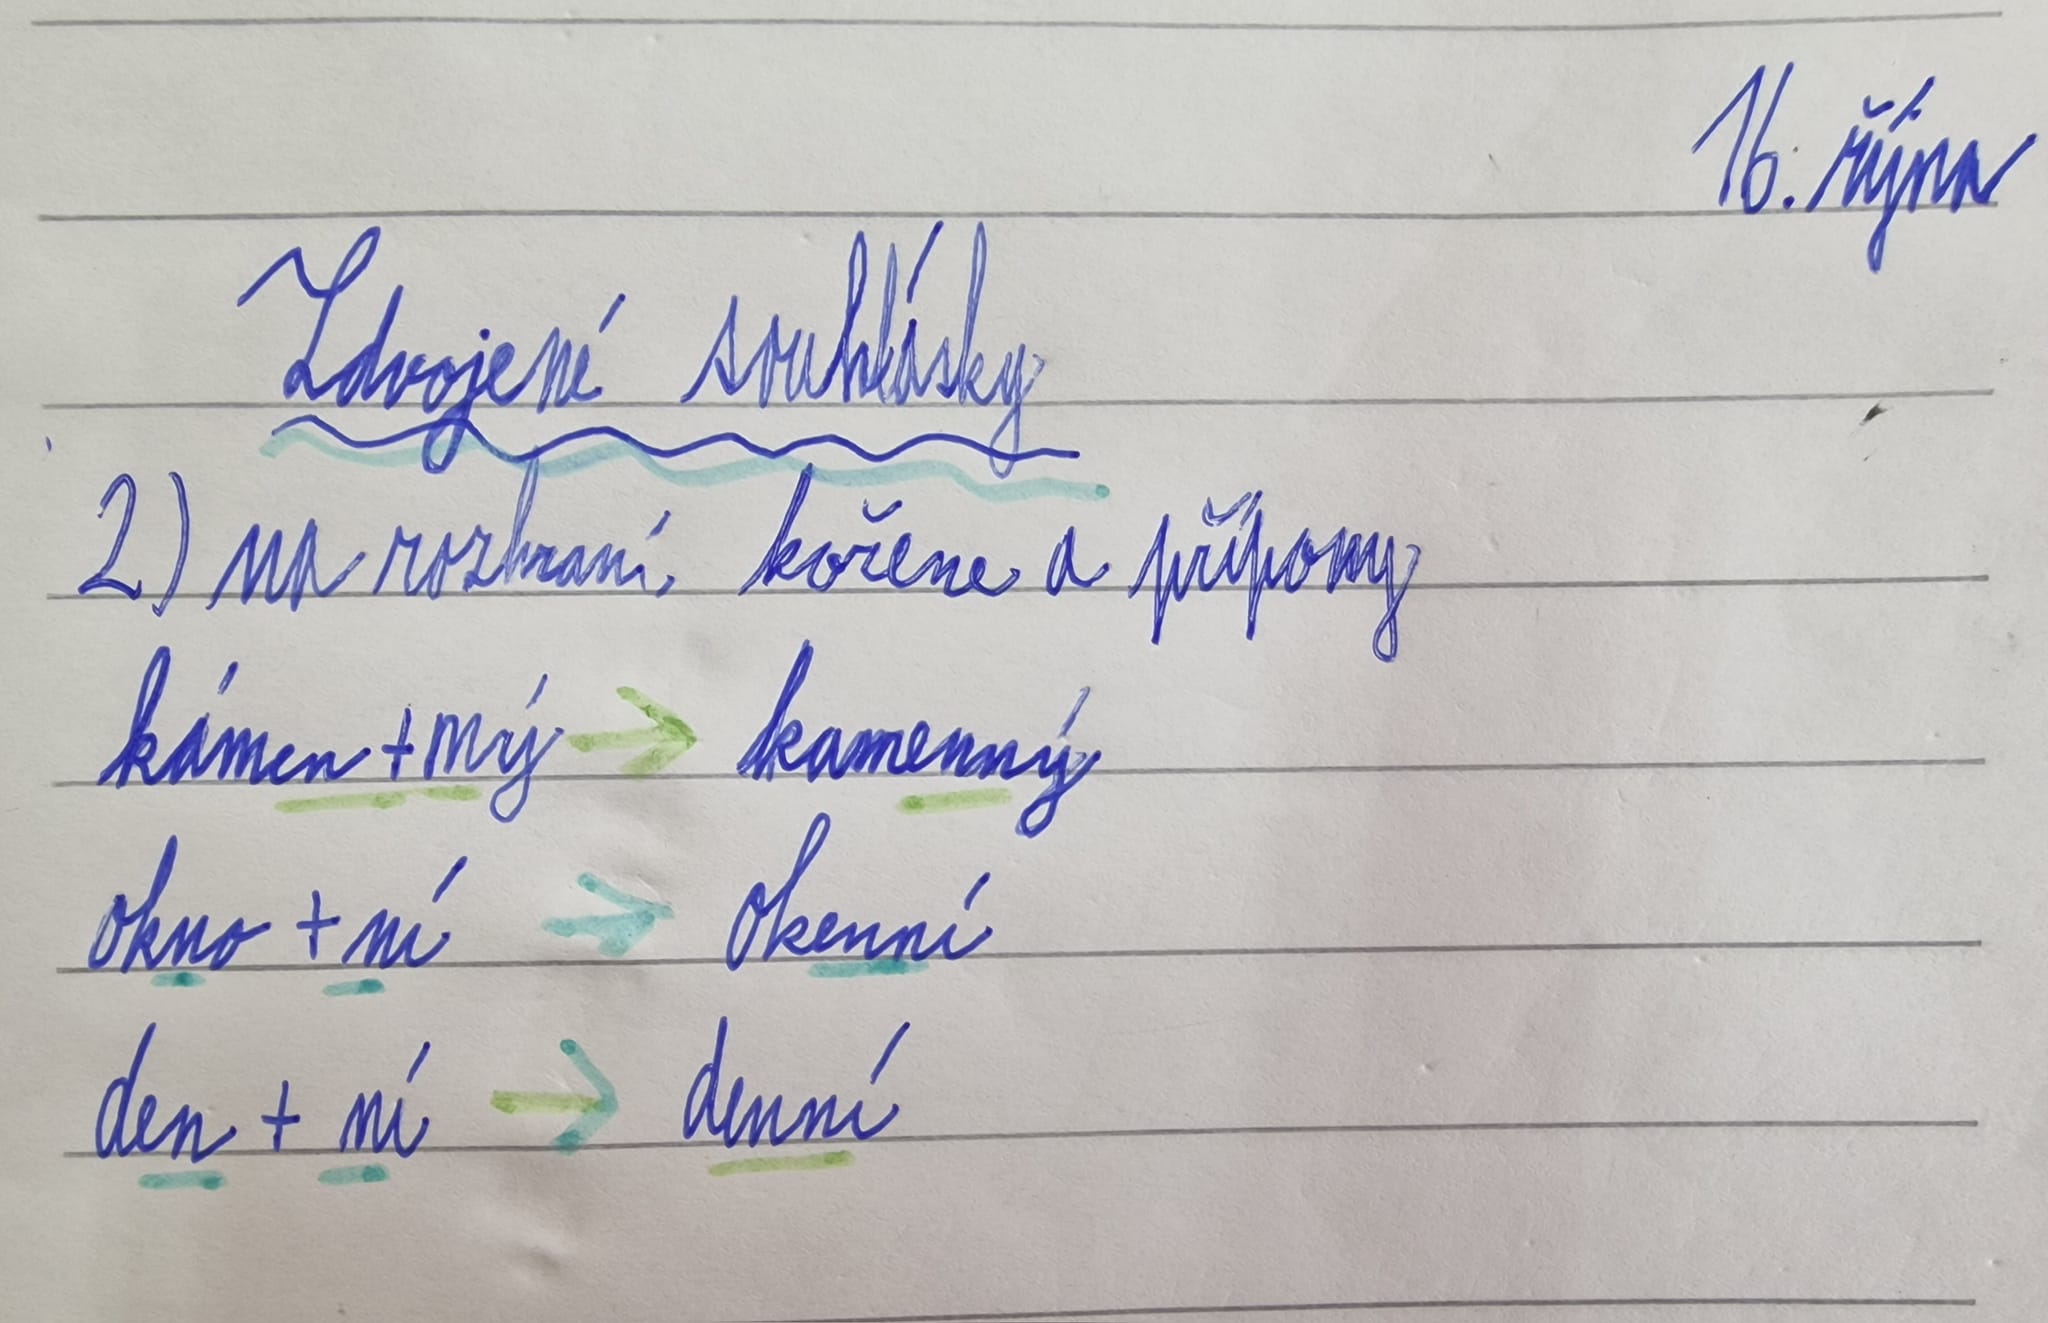 16. října
Zdvojené souhlásky
2) na rozhraní kořene a přípony
kámen + ný → kamenný
okno + ní → okenní
den + ní → denní